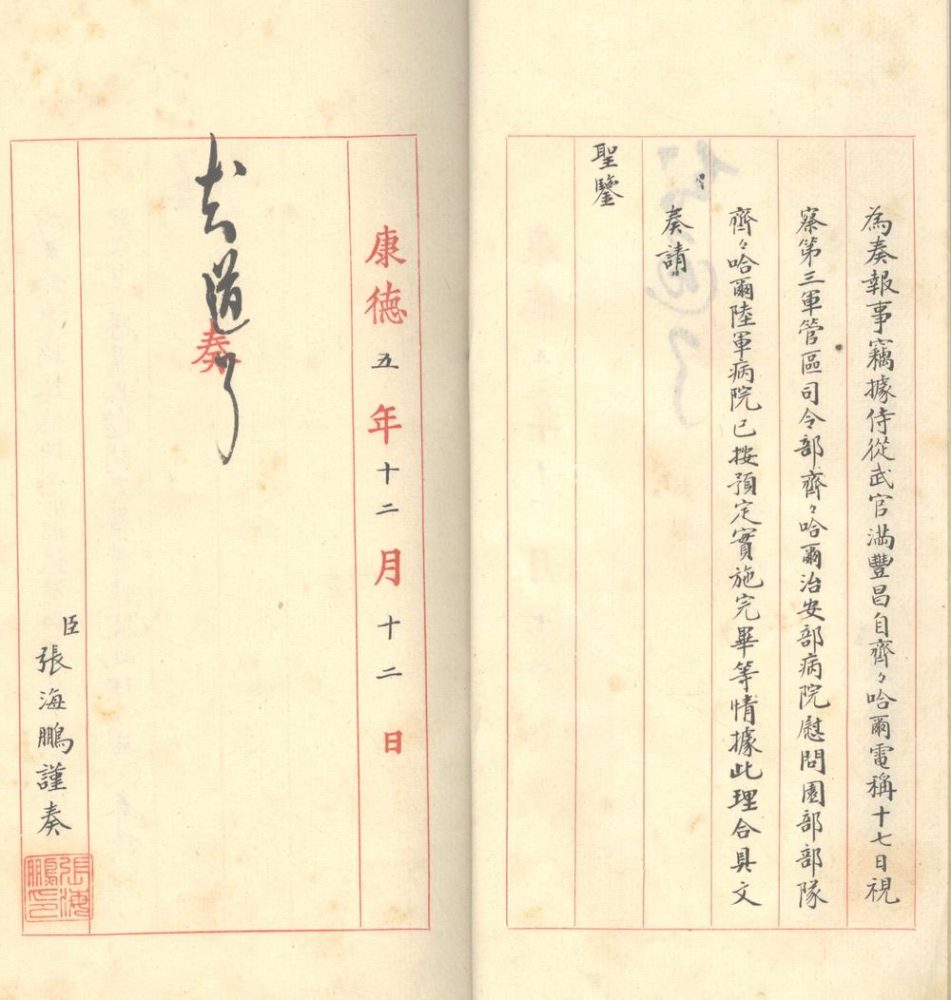 為奏報事竊據侍從武官滿豐昌自齊々哈爾電稱十七日視
察第三軍管區司令部齊々哈爾治安部病院慰問園部部隊
齊々哈爾陸軍病院已按預定實施完畢等情據此理合具文
奏請
聖鑒
康德五年十二月十二日
奏
知道了
臣張海鵬謹奏
張海鵬印